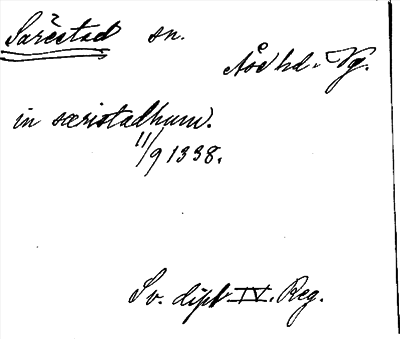 Särestad sn.
Åse hd. Vg.
in særistadhum.
11/9 1338.
Sv. dipl IV. Reg.